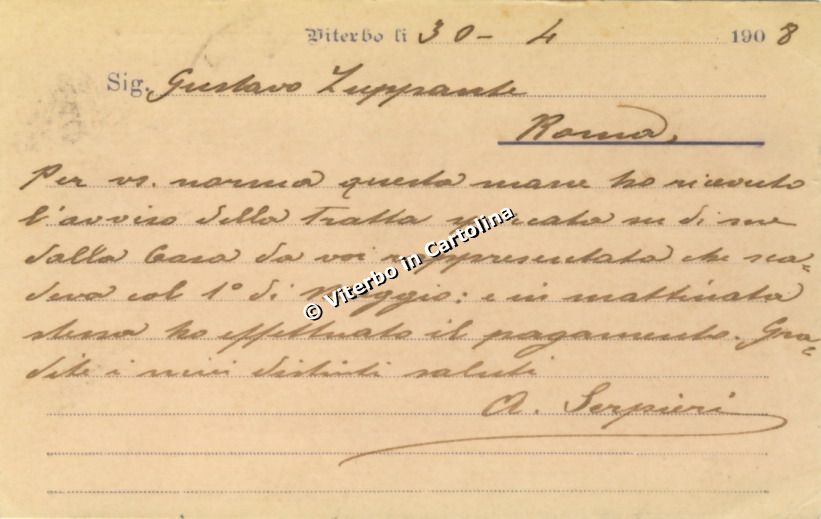 Viterbo li 30 - 4 1908
Sig. Gustavo Zuppante
Roma,
Per vs. norma questa mane ho ricevuto
l'avviso della tratta spiccata su di me
dalla Casa da voi rappresentata che sca=
deva col 1° di Maggio: e in mattinata
stessa ho effettuato il pagamento. Gra=
dite i miei distinti saluti
A. Serpieri
© Viterbo in Cartolina